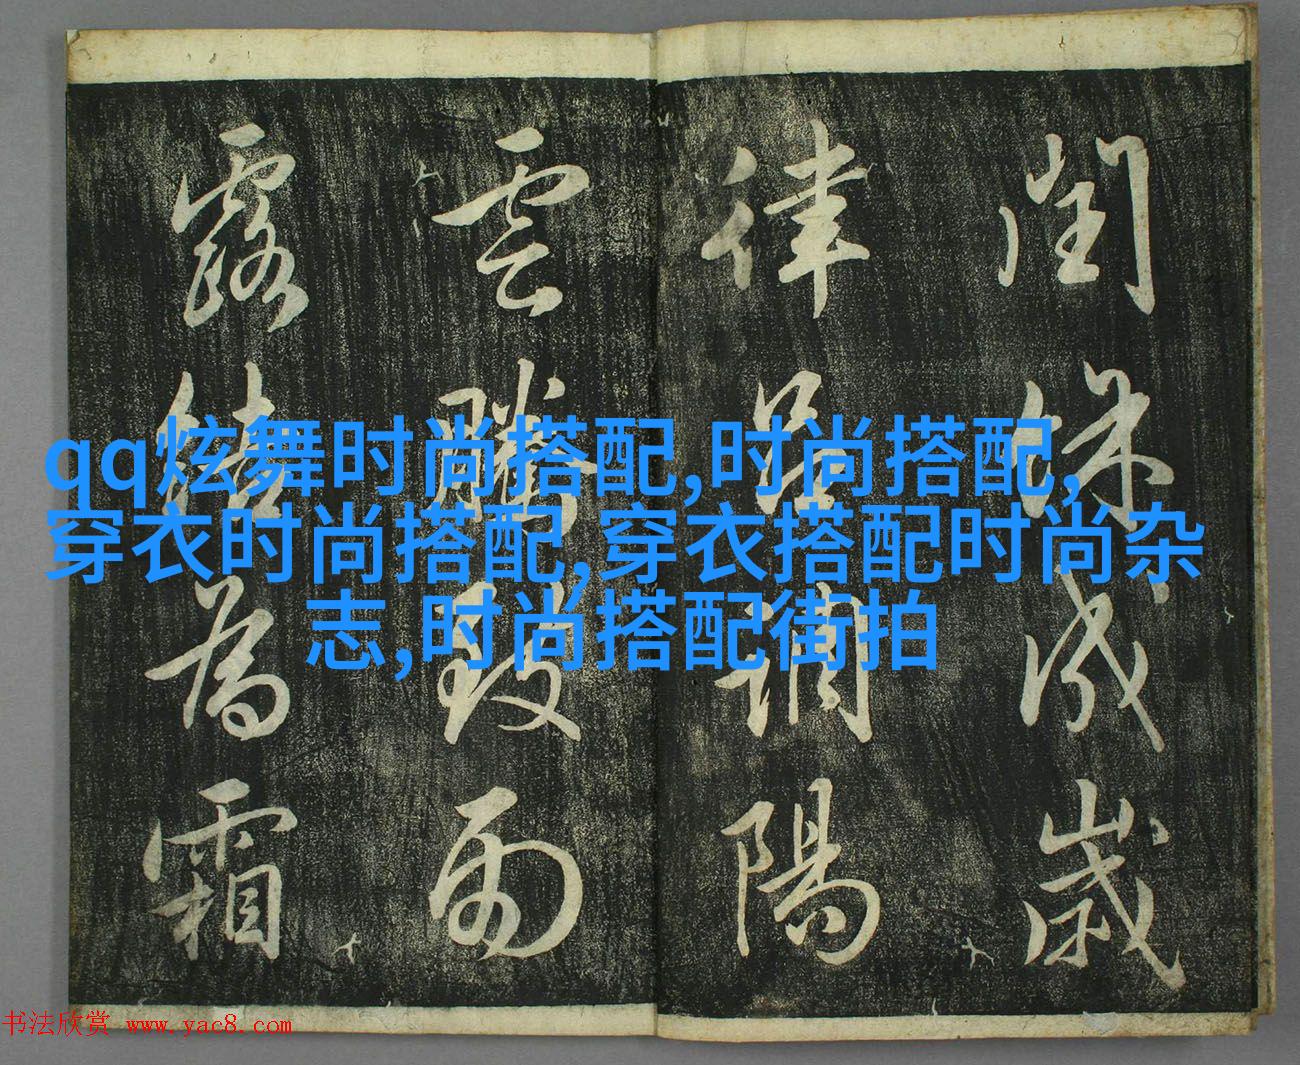 閏餘成歲
律呂調陽
雲騰致雨
露結為霜
qq炫舞时尚搭配,时尚搭配,
穿衣时尚搭配,穿衣搭配时尚杂
志,时尚搭配街拍
书法欣赏 www.yac8.com